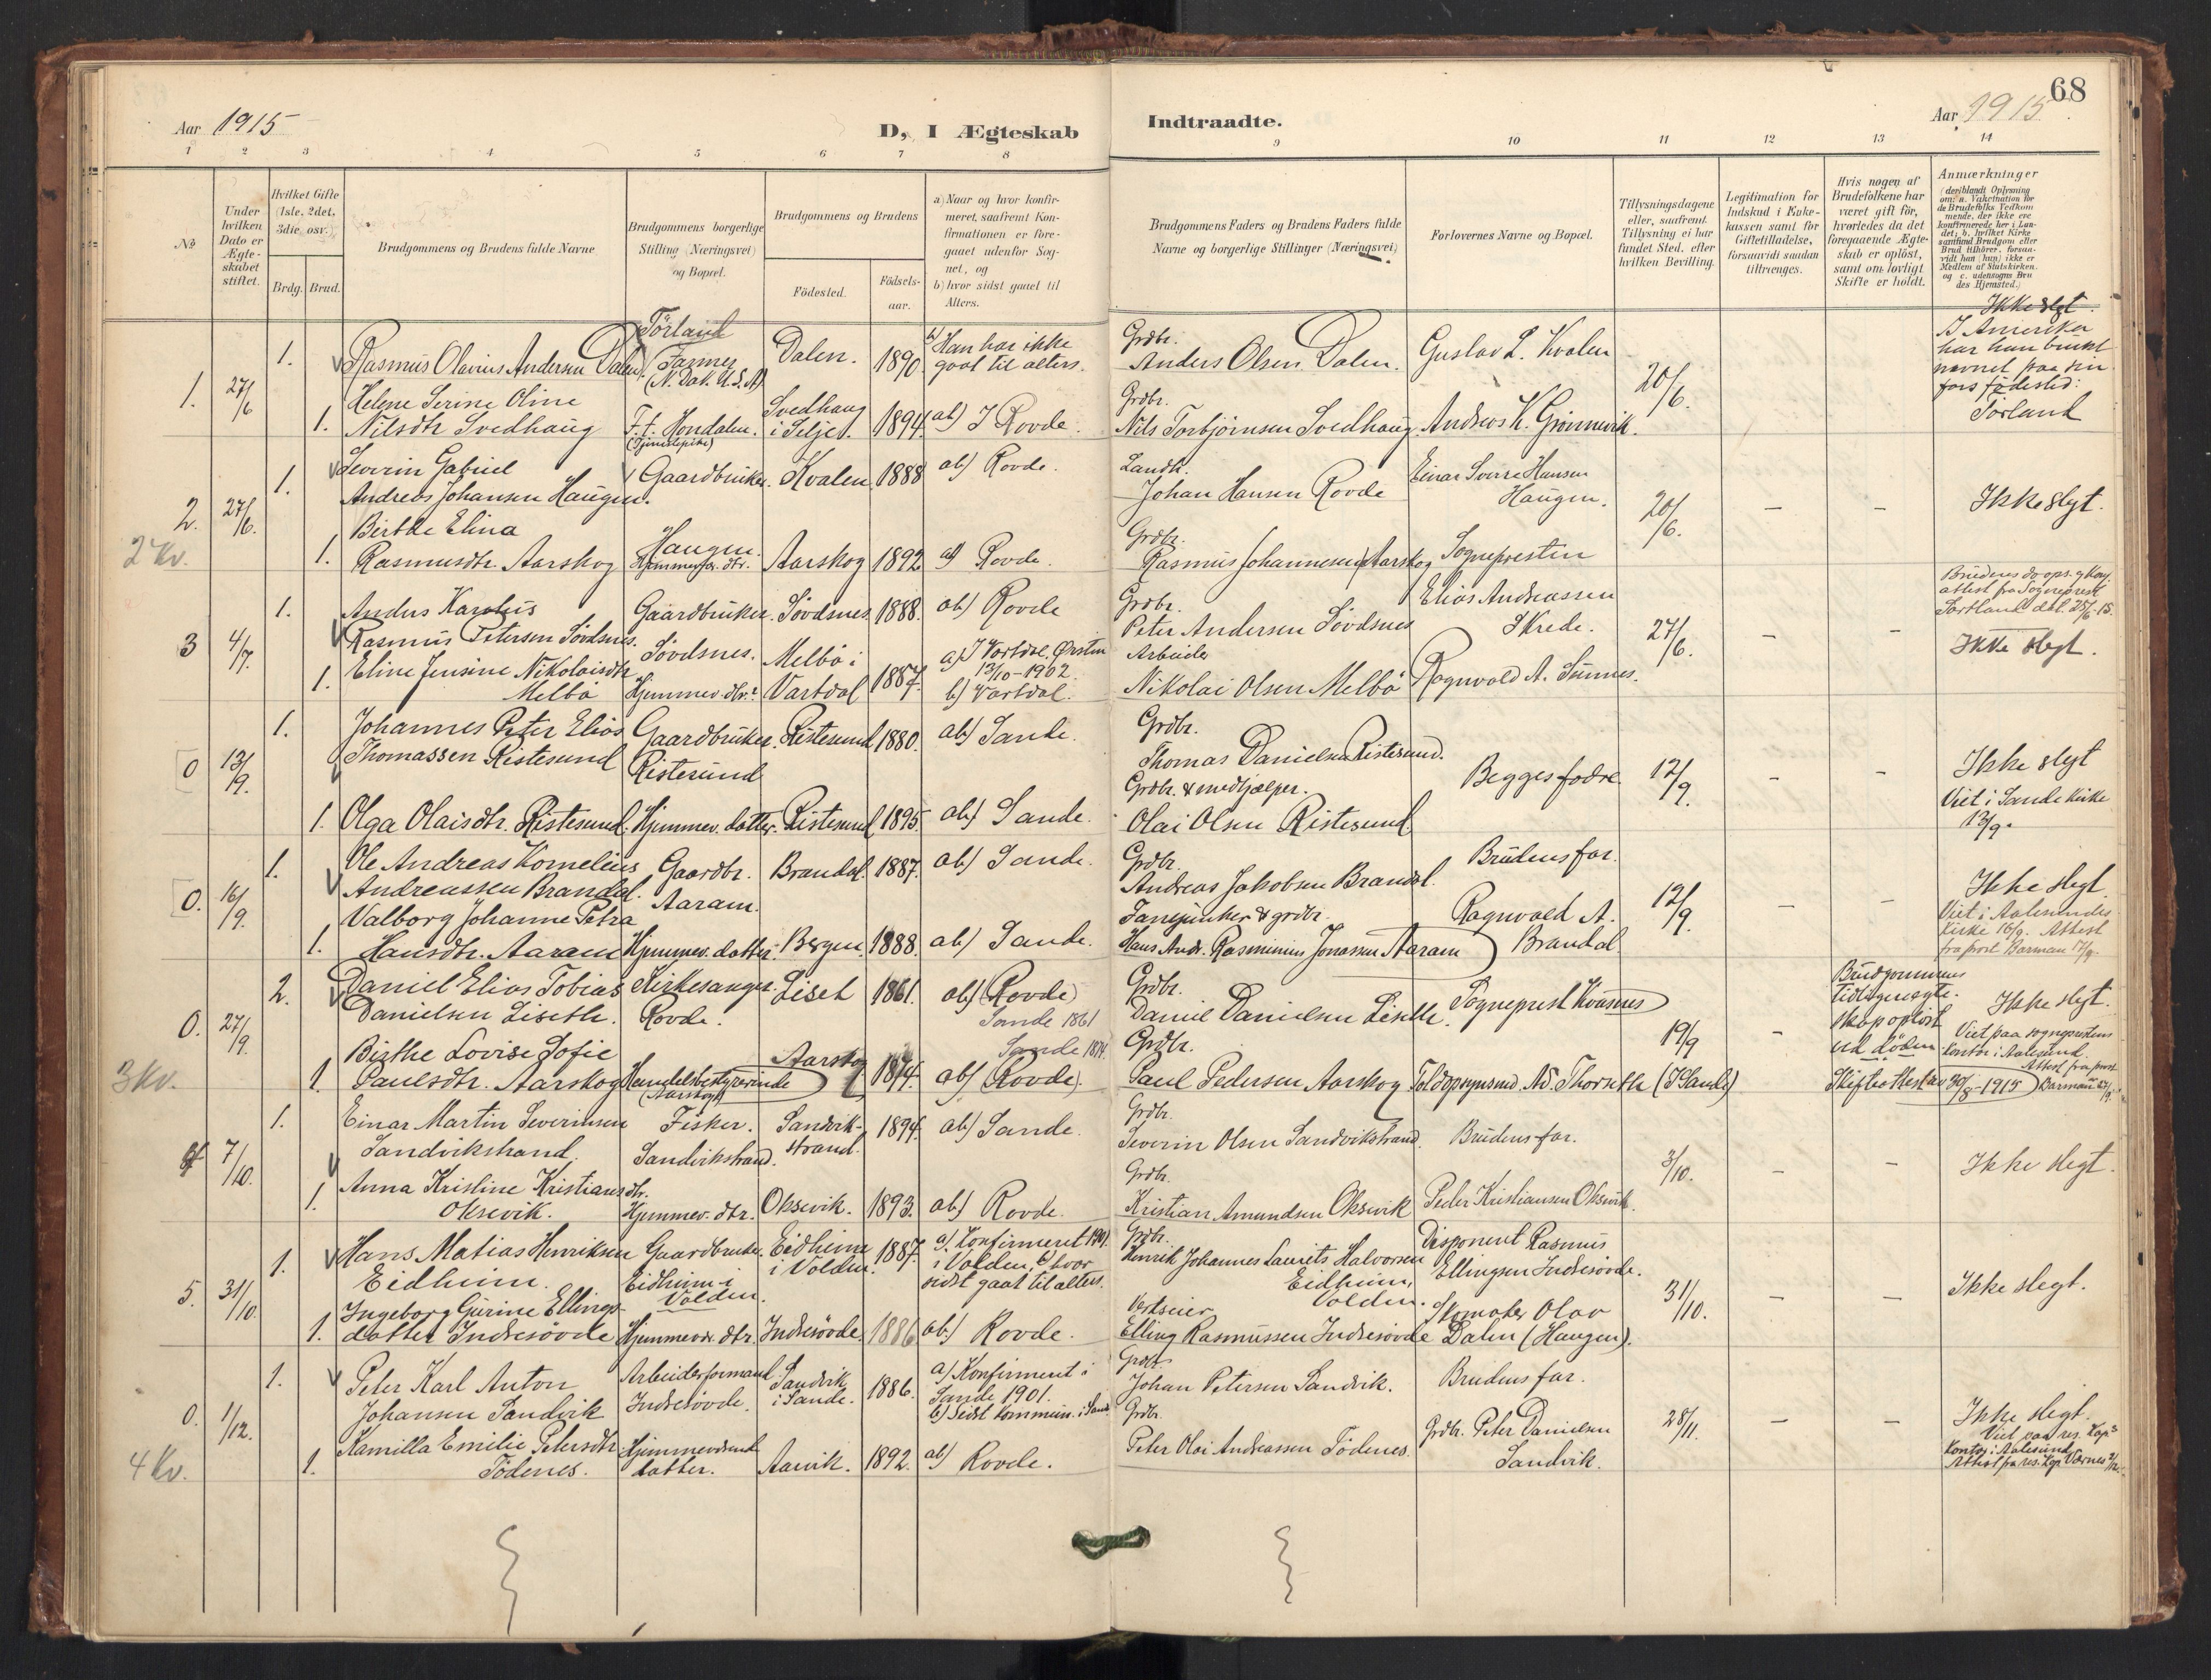 68
Aar 1915
D, I Ægteskab
Indtraadte.
Aar 1915
1 2 3 4 5 6 7 8 9 10 11 12 13 14
No
Under hvilken Dato er Ægteskabet stiftet.
Hvilket Gifte (1ste, 2det, 3die, osv.)
Brdg. Brud.
Brudgommens og Brudens fulde Navne
Brudgommens borgerlige Stilling (Næringsvei) og Bopæl.
Brudgommens og Brudens
Födested.
Födselsaar.
a) Naar og hvor konfirmeret, saafremt Konfirmationen er foregaaet udenfor Sognet, og
b) hvor sidst gaaet til Alters.
Brudgommens Faders og Brudens Faders fulde Navne og borgerlige Stillinger (Næringsvei)
Forlovernes Navne og Bopæl.
Tillysningsdagene eller, saafremt Tillysning ei har fundet Sted, efter hvilken Bevilling.
Legitimation for Indskud i Enkekassen samt for Giftetilladelse, forsaavidt saadan tiltrænges.
Hvis nogen af Brudefolkene har været gift för, hvorledes da det foregaaende Ægteskab er oplöst, samt om lovligt Skifte er holdt.
Anmærkninger
1. 27/6
1. Rasmus Olavius Andersen Dalen
Törland
Farmer
(N. Dak. U.S.A)
Dalen. 1890
b) Han har ikke
gaat til alters.
Grdbr.
Anders Olsen Dalen.
Gustav L. Kvalen
20/6.
Ikke slegt.
I Amerika
har han brukt
navnet paa sin
fars födested:
Törland
1. Helene Serine Oline
Nilsdtr Svedhaug
F.t. Hondalen.
(Tjenestepike)
Svedhaug
i Selje. 1894
ab) I Rovde.
Grdbr.
Nils Torbjörnsen Svedhaug.
Andreas K. Grönnevik.
2. 27/6.
2 Kv.
1. Severin Gabriel
Andreas Johansen Haugen.
Gaardbruker.
Haugen.
Kvalen 1888
ab) Rovde.
Landh.
Johan Hansen Rovde
Einar Sverre Hansen
Haugen.
20/6.
– –
Ikke slegt.
1. Birthe Elina
Rasmusdtr. Aarskog
Hjemmevær. dtr.
Aarskog 1892
ab) Rovde.
Grdbr.
Rasmus Johannesen Aarskog
Sognepresten
3 4/7.
1. Anders Karolus
Rasmus Petersen Sövdsnes.
Gaardbruker.
Sövdsnes.
Sövdsnes 1888.
ab) Rovde
Grdbr.
Peter Andersen Sövdsnes
Elias Andreassen
Skrede.
27/6.
– –
Brudens daaps. og konf.
attest fra Sogneprest
Sortland dat. 25/6 15.
Ikke slegt.
1. Eline Jensine Nikolaisdtr
Melbö
Hjemmev. dtr.
Melbö i
Vartdal 1887.
a) I Vartdal, Örsten
13/10-1902.
b) Vartdal.
Arbeider
Nikolai Olsen Melbö
Ragnvald A. Sunnes.
0 13/9.
1. Johannes Peter Elias
Thomassen Ristesund
Gaardbruker.
Ristesund
Ristesund 1880.
ab) Sande.
Grdbr.
Thomas Danielsen Ristesund.
Begges fædre.
12/9.
– –
Ikke slegt
Viet i Sande kirke
13/9.
1. Olga Olaisdtr. Ristesund.
Hjemmev. datter.
Ristesund 1895.
ab) Sande.
Grdbr. & medhjælper.
Olai Olsen Ristesund
0. 16/9.
1. Ole Andreas Kornelius
Andreassen Brandal.
Gaardbr.
Aaram.
Brandal. 1887.
ab) Sande.
Grdbr.
Andreas Jakobsen Brandal.
Brudens far.
12/9
– –
Ikke slegt
Viet i Aalesunds
kirke 16/9. Attest
fra prost Barman 17/9.
1. Valborg Johanne Petra
Hansdtr. Aaram
Hjemmev. datter.
Bergen. 1888.
ab) Sande.
Fanejunker & grdbr.
Hans Andr. Rasminius Jonassen Aaram
Ragnvald A.
Brandal
0. 27/9.
3 Kv.
2. Daniel Elias Tobias
Danielsen Liseth.
Kirkesanger.
Rovde.
Liset 1861.
ab) (Rovde)
Sande 1861
Grdbr.
Daniel Danielsen Liseth.
Sogneprest Kvasnes
19/9
–
Brudgommens
tidligere egte-
skap oplöst
ved döden.
Skifteattest av 30/8-1915
Ikke slegt.
Viet paa sogneprestens
kontor i Aalesund.
Attest fra prost
Barman 27/9.
1. Birthe Lovise Sofie
Paulsdtr. Aarskog
Handelsbestyrerinde
(Aarskog)
Aarskog 1874.
Sande 1874.
ab) (Rovde).
Grdbr.
Paul Pedersen Aarskog
Toldopsynsmd. Ad. Thorseth (I Sande)
4 7/10.
1. Einar Martin Severinsen
Sandvikstrand.
Fisker.
Sandvikstrand.
Sandvik-
strand. 1894.
ab) Sande.
Grdbr.
Severin Olsen Sandvikstrand.
Brudens far.
3/10.
– –
Ikke slegt.
1. Anna Kristine Kristiansdtr.
Oksevik.
Hjemmev. dtr.
Oksevik. 1893.
ab) Rovde.
Grdbr.
Kristian Amundsen Oksevik
Peder Kristiansen Oksevik.
5. 31/10.
1. Hans Matias Henriksen
Eidheim.
Gaardbruker.
Eidheim i
Volden.
Eidheim
i Volden. 1887.
a) Konfirmeret 1901.
i Volden, b) hvor
sidst gaat til alters.
Grdbr.
Henrik Johannes Laurits Halvorsen
Eidheim,
Volden.
Disponent Rasmus
Ellingsen Indresövde.
31/10.
– –
Ikke slegt.
1. Ingeborg Gurine Ellings-
datter Indresövde
Hjemmevr. dtr.
Indresövde. 1886
ab) Rovde.
Verkseier
Elling Rasmussen Indresövde
Skomaker Olav
Dalen (Haugen).
0. 1/12.
4 Kv.
1. Peter Karl Anton
Johansen Sandvik
Arbeiderformand.
Indresövde.
Sandvik
i Sande. 1886.
a) Konfirmert i
Sande 1901.
b) Sidst kommun. i Sand.
Grdbr.
Johan Petersen Sandvik.
Brudens far.
28/11.
– –
Ikke slegt.
Viet paa res. kap.s
kontor i Aalesund
Attest fra res. kap. Værnes 2/12.
1. Kamilla Emilie Petersdtr.
Tödenes.
Hjemmevrende
datter.
Aarvik. 1892.
ab) Rovde.
Grdbr.
Peter Olai Andreassen Tödenes.
Grdbr. Peter Danielsen
Sandvik.